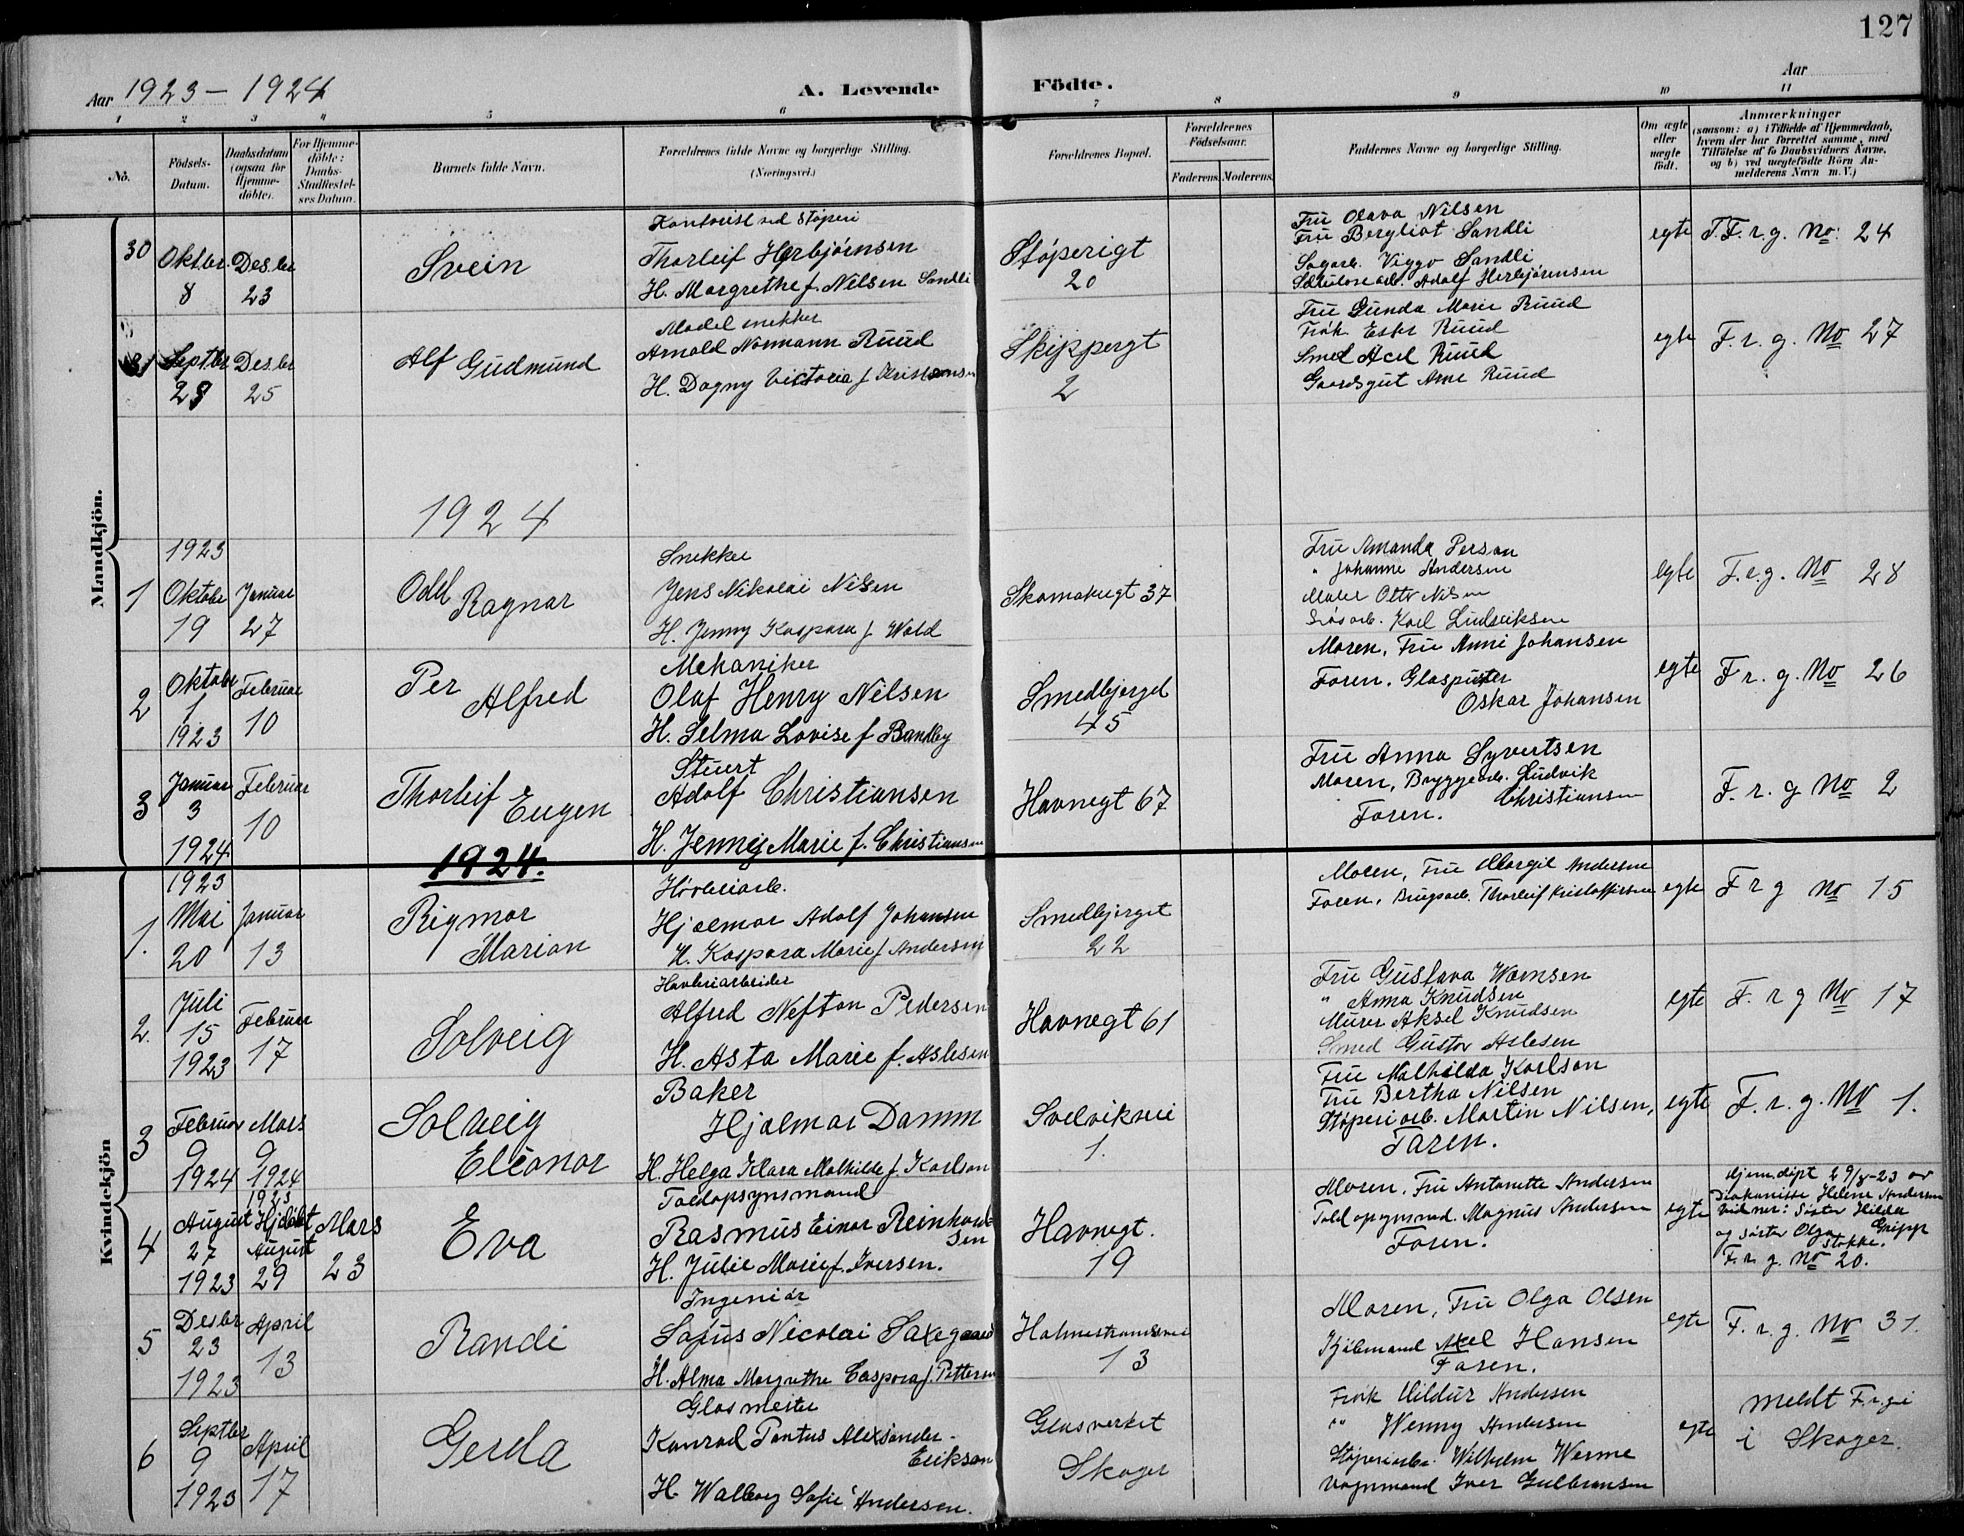 127
Aar 1923 – 1924
A. Levende Födte.
Aar
1 2 3 4 5 6 7 8 9 10 11
No.
Födsels-Datum.
Daabsdatum (ogsaa for Hjemme-döbte).
For Hjemme-döbte: Daabs-Stadfæstel-ses Datum.
Barnets fulde Navn.
Forældrenes fulde Navne og borgerlige Stilling.
(Næringsvei.)
Forældrenes Bopæl.
Forældrenes Födselsaar.
Faderens. Moderens.
Faddernes Navne og borgerlige Stilling.
Om ægte eller uægte födt.
Anmærkninger
(saasom: a) i Tilfælde af Hjemmedaab, hvem der har forrettet samme, med Tilföielse af to Daabsvidners Navne, og b) ved uægtefödte Börn Anmelderens Navn m. V.)
Mandkjön.
30 Oktbr. 8 Des.br 23
Svein
Kontorist ved Støperi
Thorleif Herbjørnsen
H. Margrethe f. Nilsen Sandli
Støperigt 20
Fru Olava Nilsen
Fru Bergliot Sandli
Sagarb. Viggo Sandli
Adolf Herbjørensen
egte
F. r. g. No. 24
31 Septbr Des.br 25
Alf Gudmund
Model snekker
Arnold Normann Ruud
H. Dagny Victoria f. Kristiansen
Skippergt 2
Fru Gunda Marie Ruud
Frøk. Ester Ruud
Smed Acel Ruud
Gaardsgut Arne Ruud
egte
F. r. g. No 27
1924
1 1923 Oktober 19 Januar 27
Odd Ragnar
Snekker
Jens Nikolai Nilsen
H. Jenny Kaspara f. Wold
Skomakergt 37
Fru Amanda Person
" Johanne Andersen
Maler Otto Nilsen
Karl Ludviksen
egte
F. r. g. No 28
2 Oktober 1 1923 Februar 10
Per Alfred
Mekaniker
Olaf Henry Nilsen
H. Selma Lovise f. Bandby
Smedbjerget 45
Moren, Fru Anni Johansen
Faren. Glaspuster
Oskar Johansen
egte
F r. g. No 26
3 Januar 3 1924 Februar 10
Thorleif Eugen
Stuert
Adolf Christiansen
H. Jenny Marie f. Christiansen
Havnegt 67
Fru Anna Syvertsen
Moren, Bryggearb. Ludvik
Christiansen
Faren.
F. r. g No 2
1924.
Kvindekjön
1. 1923 Mai 20 Januar 13
Rigmor Marion
Høvleriarb.
Hjalmar Adolf Johansen
H. Kaspara Marie f Andersen
Smedbjerget 22
Moren, Fru Margit Andersen
Faren, Brugsarb. Thorleif Kristoffersen
egte
F r g No 15
2. Juli 15 1923 Februar 17
Solveig
Havneriarbeider
Alfred Nefton Pedersen
H. Asta Marie f. Aslesen
Havnegt 61
Fru Gustava Wærnsen
" Anna Knudsen
Murer Aksel Knudsen
Smed Gustav Aslesen
egte
F. r g No 17
3 Februar 9 1924 Mars 9 1924
Solveig Eleonor
Baker
Hjalmar Damm
H. Helga Klara Mathilde f. Karlson
Svelvikvei 1.
Fru Mathilda Karlson
Fru Bertha Nilsen
Støperiarb. Martin Nilsen,
Faren.
egte
F. r. g. No 1.
4 August 27 1923 1923 Hjdøbt August 29 Mars 23
Eva
Toldopsynsmand
Rasmus Einar Reinhardsen
H. Julie Marie f. Iversen.
Havnegt. 19
Moren. Fru Antonette Andersen
Toldopsynsmd. Magnus Andersen
Faren.
egte
Hjemdøpt 29/8-23 av
Diakonisse Helene Andersen
Vidner: Søster Hilda Gripp
og søster Olga Stokke.
F. r. g. No 20.
5 Desbr 23 1923 April 13
Randi
Ingeniør
Sofus Nicolai Saxegaard
H. Alma Margrethe Caspara f. Pettersen
Holmestrandsvei 13
Moren, Fru Olga Olsen
Kjøbmand Axel Hansen
Faren.
egte
F. r. g. No 31.
6 Septbr 9 1923 April 17
Gerda
Glasmester
Konrad Pontus Alexander
Erikson
H. Walborg Sofie Andersen.
Glasverket Skoger
Frøk Hildur Andersen
" Wenny Andersen
Støperiarb. Wilhelm Werme
Vognmand Iver Gulbransen
egte
meldt F.r.g. i
i Skoger.